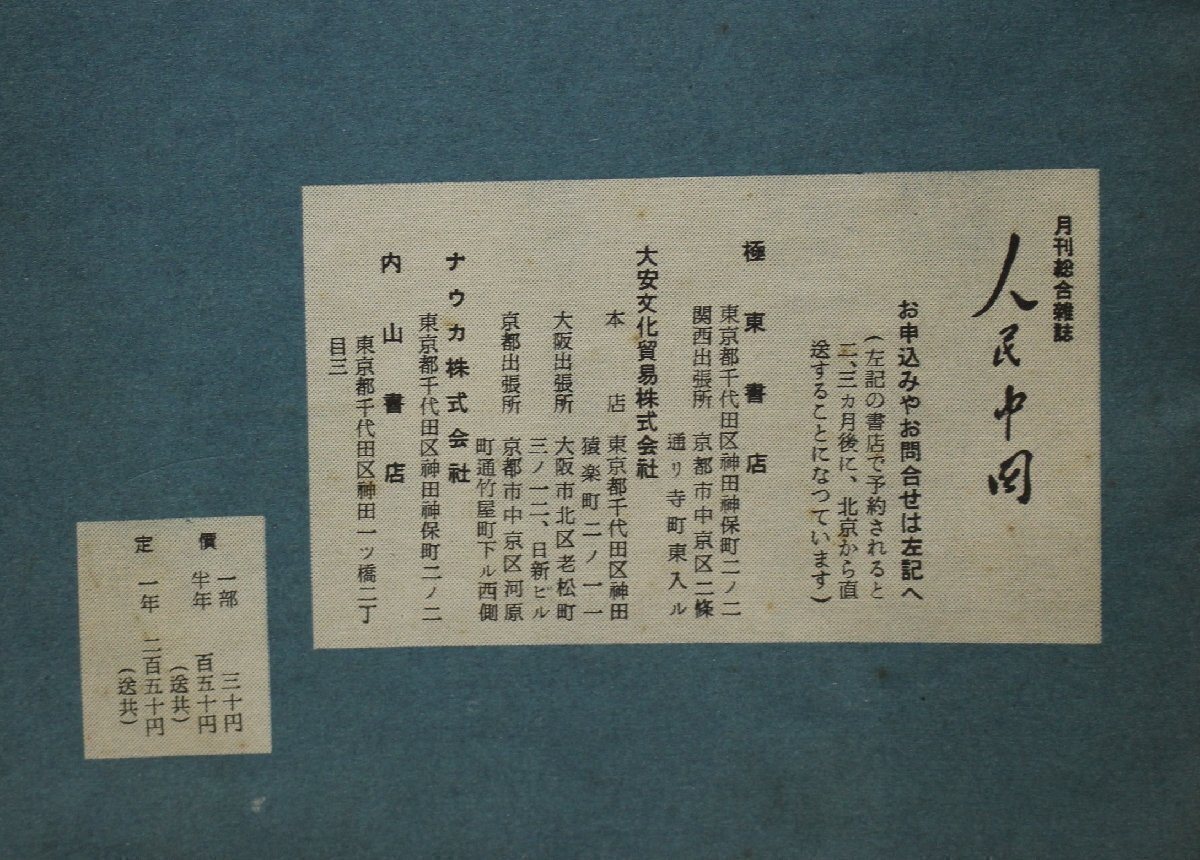 月刊総合雑誌
人民中国
お申込みやお問合せは左記へ
(左記の書店で予約されると
二、三ヵ月後に、北京から直
送することになつています)
極東書店
東京都千代田区神田神保町二ノ二
関西出張所 京都市中京区二條
通リ寺町東入ル
大安文化貿易株式会社
本店 東京都千代田区神田
猿楽町二ノ一一
大阪出張所 大阪市北区老松町
三ノ一二、日新ビル
京都出張所 京都市中京区河原
町通竹屋町下ル西側
ナウカ株式会社
東京都千代田区神田神保町二ノ二
内山書店
東京都千代田区神田一ツ橋二丁
目三
定價
一部 三十円
半年 百五十円
(送共)
一年 二百五十円
(送共)